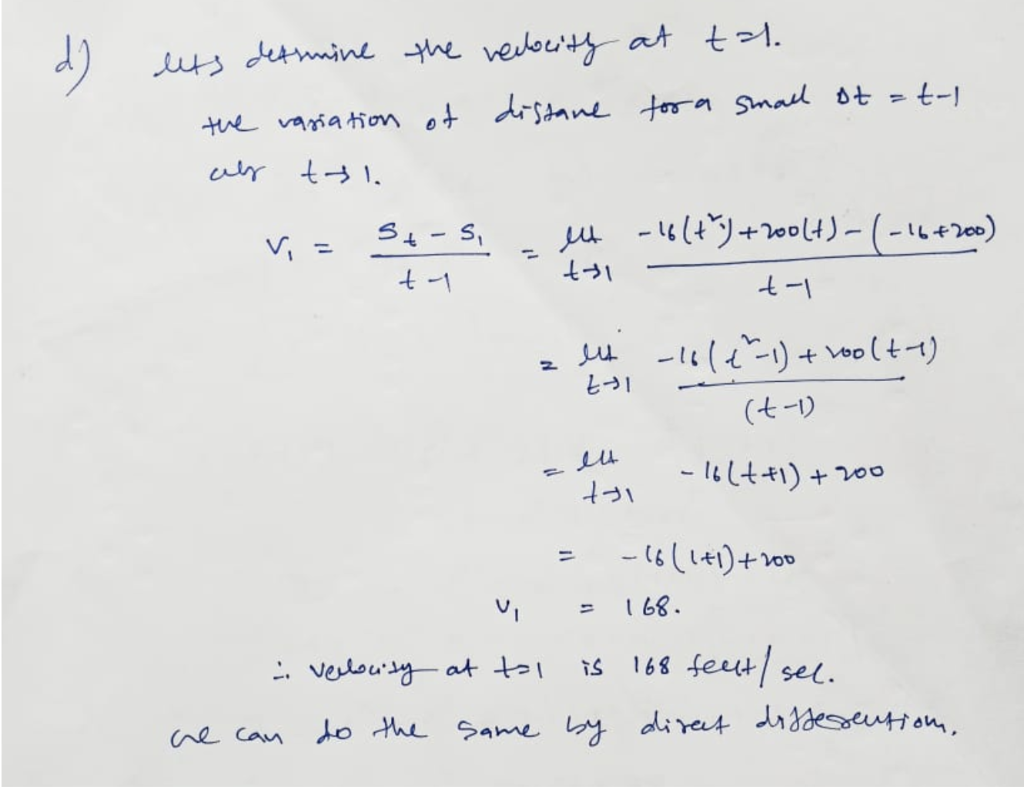 d) lets determine the velocity at t=1.
the variation of distane for a small Δt = t-1
as t→1.
V₁ = (S_t - S₁)/(t-1) = lt t→1 (-16(t²)+200(t)-(-16+200))/(t-1)
= lt t→1 (-16(t²-1)+200(t-1))/((t-1))
= lt t→1 -16(t+1)+200
= -16(1+1)+200
V₁ = 168.
∴ velocity at t=1 is 168 feet/sec.
we can do the same by direct differention.